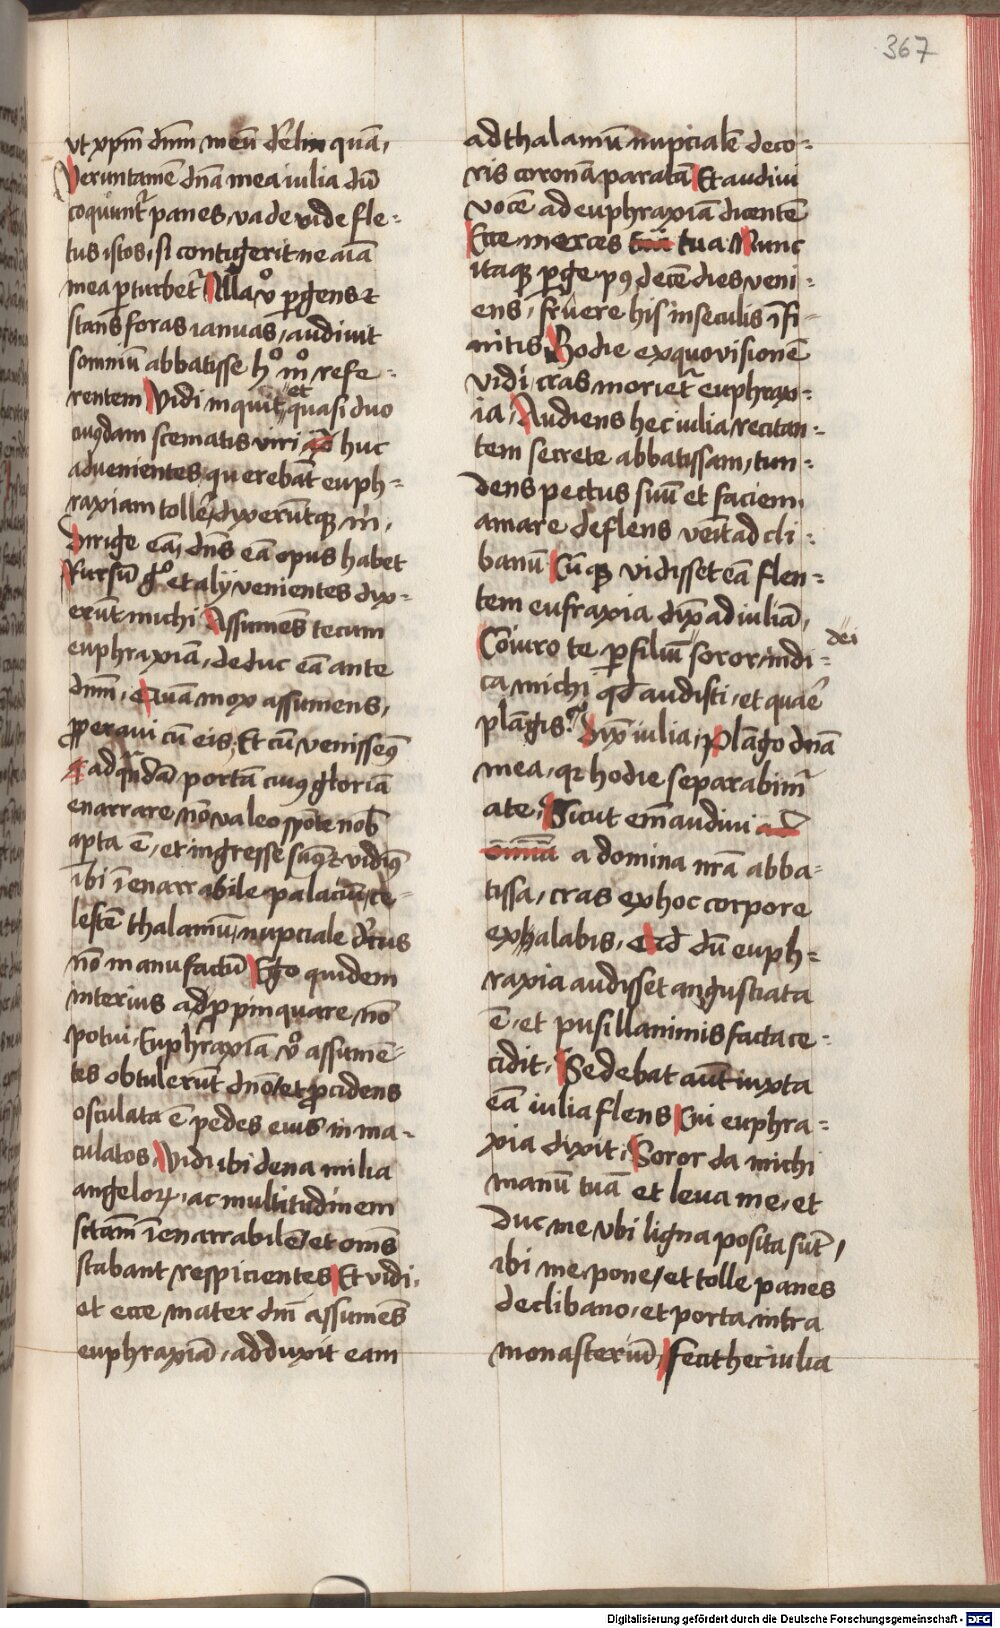 367
ut xpm̄ dnm̄ meū dereliq̄uā,
Veruntamē dn̄a mea iulia dū
coquunt᷑ panes, vade vide fle-
tus istos, si contigerit ne aīa
mea ꝑturbet᷑ Illa vͦ ꝑgens et
stans foras ianuas, audiuit
somniū abbatisse hͦ mͦ refe-
rentem Vidi inquit et quasi duo
cuiꝰdam scematis viri huc
aduenientes querebāt euph-
raxiam tollēr, dixerūtqꝫ m̄,
Dirige eā, dn̄s eā opus habet
Rursū gͦ et alij venientes dix-
erūt michi Assumēs tecum
euphraxiā, deduc eā ante
dnm̄, Quā mox assumens,
ꝓperaui cū eis, Et cū venissemꝰ
ad quādā portā cuiꝰ gloriā
enarrare nō valeo spōte nob̄
apta ē, et ingresse sumꝰ et vidimꝰ
ibi īenarrabile palaciū, ce-
lestē thalamū, nupciale decus
nō manufactū Ego quidem
interius adꝓpinquare nō
potui, Euphraxiā vͦ assumē-
tes obtulerūt dn̄o, et ꝓcidens
osculata ē pedes eius inma-
culatos, Vidi ibi dena milia
angeloꝝ, ac multitudinem
sctām īenarrabilē, et om̄s
stabant respicientes Et vidi,
et ecce mater dnī assumēs
euphraxiā, adduxit eam
ad thalamū nupcialē deco-
ris coronā paratā Et audiui
vocē ad euphraxiā dicentē
Ecce merces tua Nunc
itaqꝫ ꝑge pꝰ decē dies veni-
ens, fruere his in seculis īfi-
nitis, Hodie ex quo visionē
vidi, cras moriet᷑ euphrax-
ia, Audiens hec iulia recitan-
tem secrete abbatissam, tun-
dens pectus suū et faciem,
amare deflens venit ad cli-
banū Cūqꝫ vidisset eā flen-
tem eufraxia dix̄ ad iuliā,
Coniuro te ꝑ filiū dei soror, indi-
ca michi qd̄ audisti, et quare
plāgis? dix̄ iulia, Plāgo dn̄a
mea, qꝛ hodie separabimr̄
a te, Sicut em̄ audiui
a domina nr̄a abba-
tissa, cras ex hoc corpore
exhalabis, Qd̄ dū euph-
raxia audisset angustiata
ē, et pusillanimis facta ce-
cidit, Sedebat aūt iuxta
eā iulia flens Cui euphra-
xia dixit, Soror da michi
manū tuā et leua me, et
duc me vbi ligna posita sūt,
ibi me pone, et tolle panes
de clibano, et porta intra
monasteriū, Fecit hec iulia
Digitalisierung gefördert durch die Deutsche Forschungsgemeinschaft - DFG